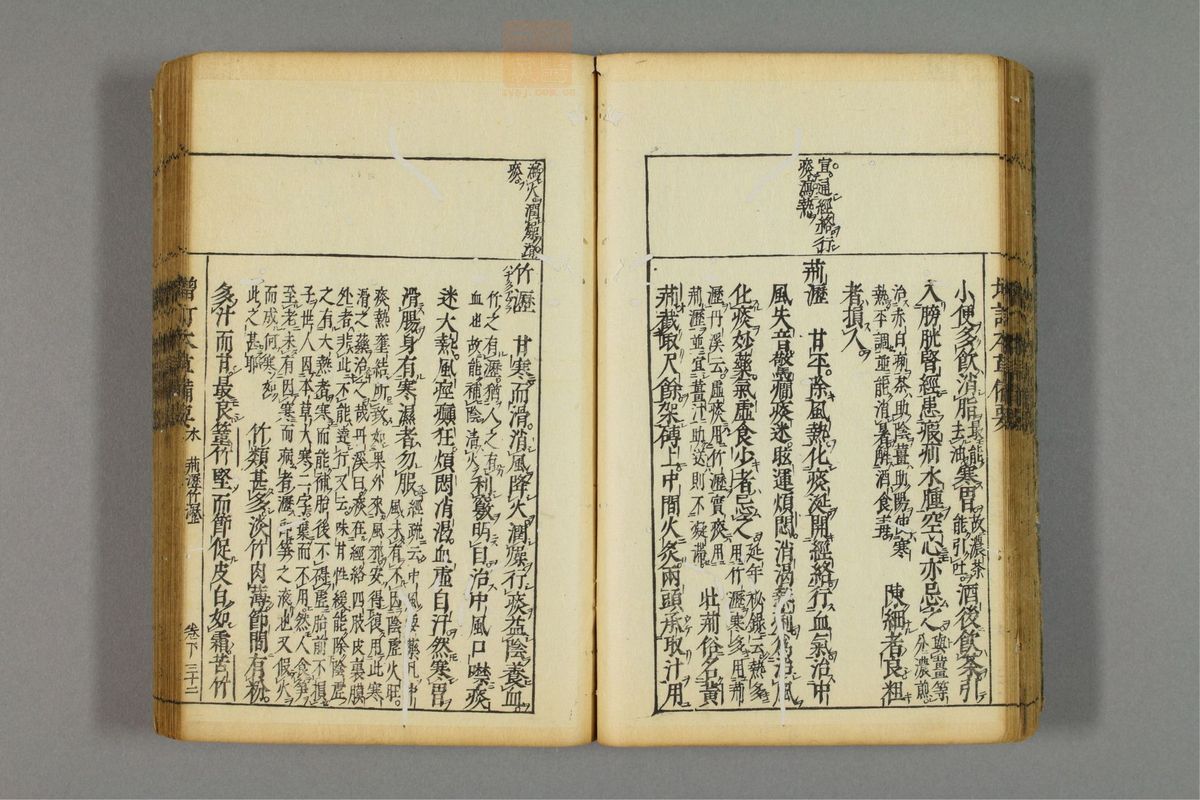 宣通經絡行
痰瀉熱
小便多飲消脂最能去油寒胃故濃茶能引吐酒後飲茶引
入膀胱腎經患瘕疝水腫空心亦忌之與薑等分濃煎
治赤白痢茶助陰薑助陽使寒
熱平調並能消暑解酒食毒 陳細者良粗
者損人
荊瀝 甘平除風熱化痰涎開經絡行血氣治中
風失音驚癇痰迷眩運煩悶消渴熱痢為治風
化痰妙藥氣虛食少者忌之延年秘錄云熱多用竹瀝寒多用荊
瀝丹溪云虛痰用竹瀝實痰用
荊瀝並宜薑汁助送則不凝滯 牡荊俗名黃
荊截取尺餘架磚上中間火炙兩頭承取汁用
瀉火潤燥
痰
竹瀝 甘寒而滑消風降火潤燥行痰益陰養血
竹之有瀝猶人之有
血也故能補陰清火 利竅明目治中風口噤痰
迷大熱風痙癲狂煩悶消渴血虛自汗然寒胃
滑腸身有寒濕者勿服經疏云中風要藥凡中風未有不因陰虛火旺
痰熱壅結所致如果外來風邪安得復用此寒
滑之藥治之哉丹溪曰痰在經絡四肢皮裏膜
外者非此不能達行又云味甘性緩能除陰虛
之有大熱者寒而能補胎後不礙虛胎前不損
子世人因本草大寒二字棄而不用然人食筍
至老未有因寒而病者瀝即筍之液也又假火
而成何寒如
此之甚耶 竹類甚多淡竹肉薄節間有粉
多汁而甘最良篁竹堅而節促皮白如霜苦竹
增訂本草備要
水 荊瀝竹瀝
卷下 三十二